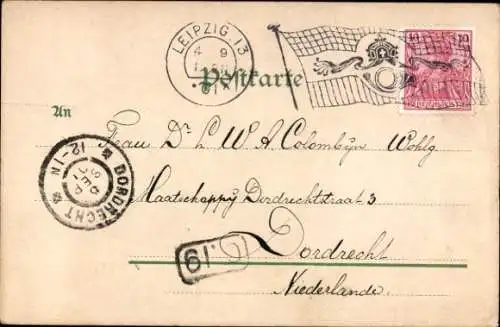 LEIPZIG 13
4 9
01
10 10
Postkarte
An
Frau Dr L W A Colombijn Wohlg
DORDRECHT
12-1N
SEP
01
Maatschappij Dordrechtstraat 3
Dordrecht
6.19
Niederlande.